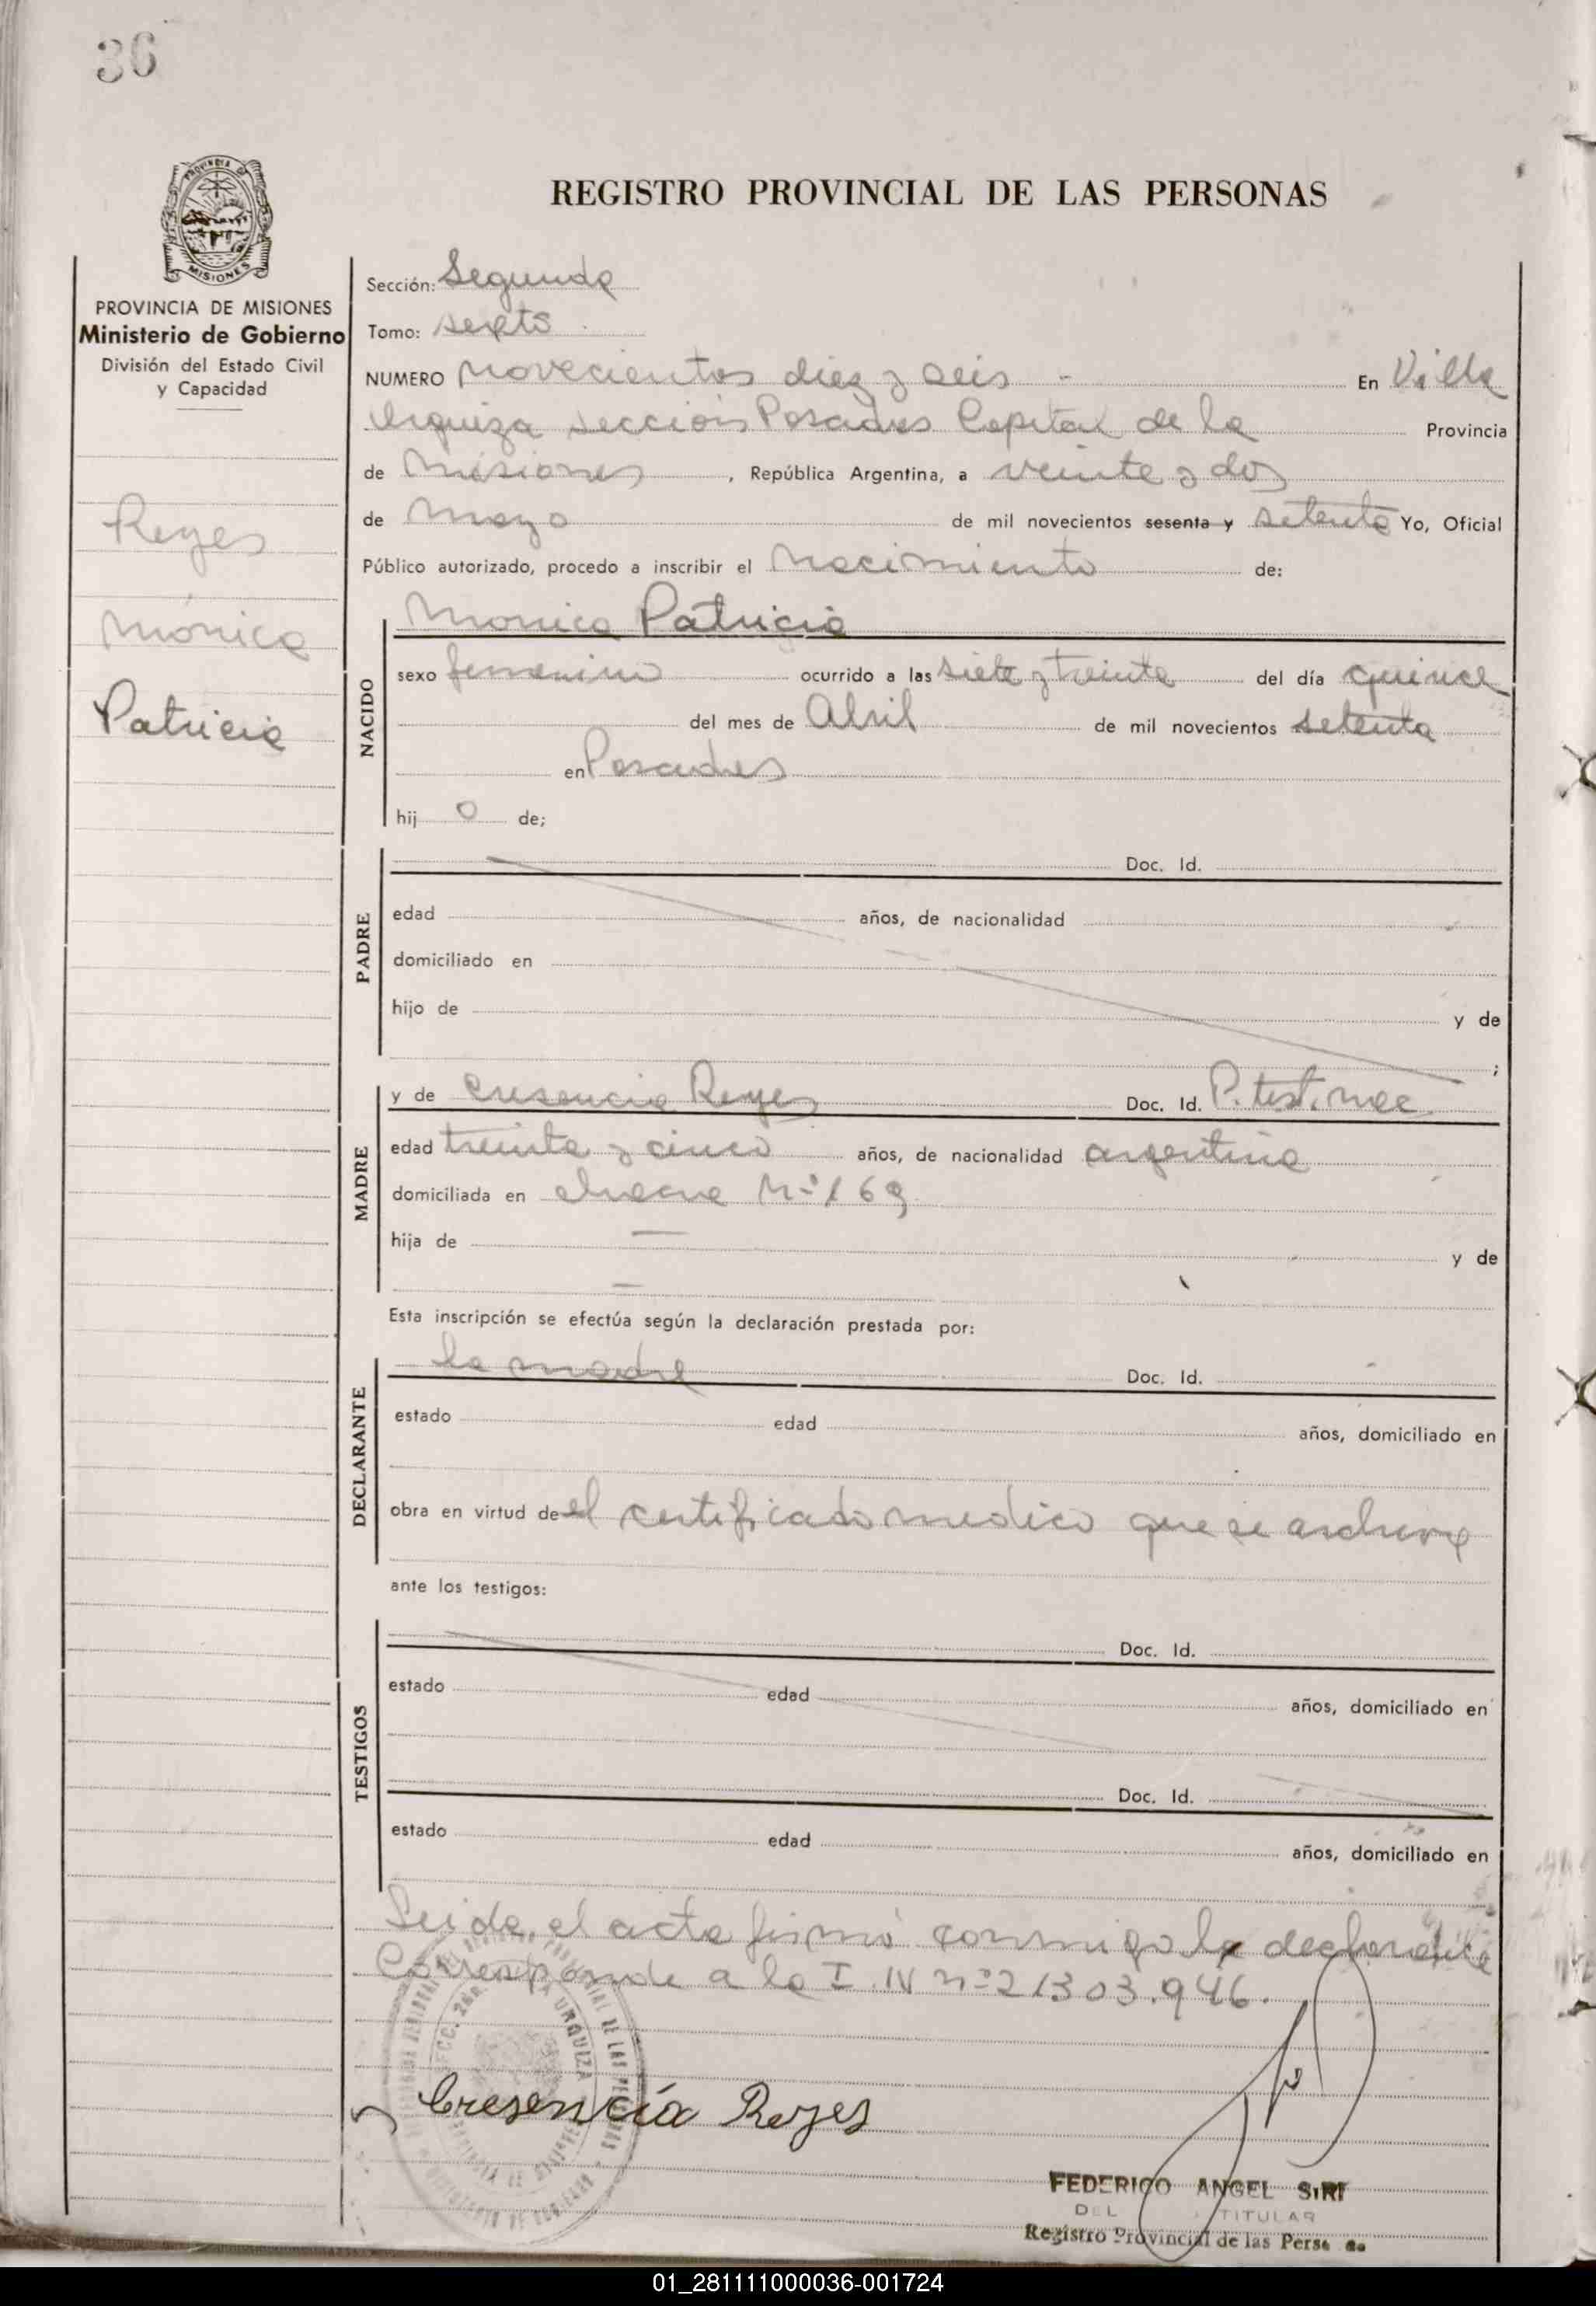 36
REGISTRO PROVINCIAL DE LAS PERSONAS
PROVINCIA DE MISIONES
Ministerio de Gobierno
División del Estado Civil
y Capacidad
Reyes
Mónica
Patricia
Sección: Segunda
Tomo: sexto
NUMERO Novecientos diez y seis - En Villa
Urquiza sección Posadas Capital de la Provincia
de Misiones, República Argentina, a veinte y dos
de Mayo de mil novecientos sesenta y setenta Yo, Oficial
Público autorizado, procedo a inscribir el Nacimiento de:
Monica Patricia
NACIDO
sexo femenino ocurrido a las siete y treinta del día quince
del mes de Abril de mil novecientos setenta
en Posadas
hij o de;
PADRE
Doc. Id.
edad años, de nacionalidad
domiciliado en
hijo de y de
;
MADRE
y de Cresencia Reyes Doc. Id. P. test. nac.
edad treinta y cinco años, de nacionalidad argentina
domiciliada en Nº 169
hija de — y de
—
Esta inscripción se efectúa según la declaración prestada por:
DECLARANTE
la madre Doc. Id.
estado edad años, domiciliado en
obra en virtud de el certificado medico que se archiva
ante los testigos:
TESTIGOS
Doc. Id.
estado edad años, domiciliado en
Doc. Id.
estado edad años, domiciliado en
Leida el acta firmó conmigo la declarante
Corresponde a la I. N nº 21303.946.
Cresencía Reyes
FEDERICO ANGEL SIRI
DEL TITULAR
Registro Provincial de las Pers
01_281111000036-001724